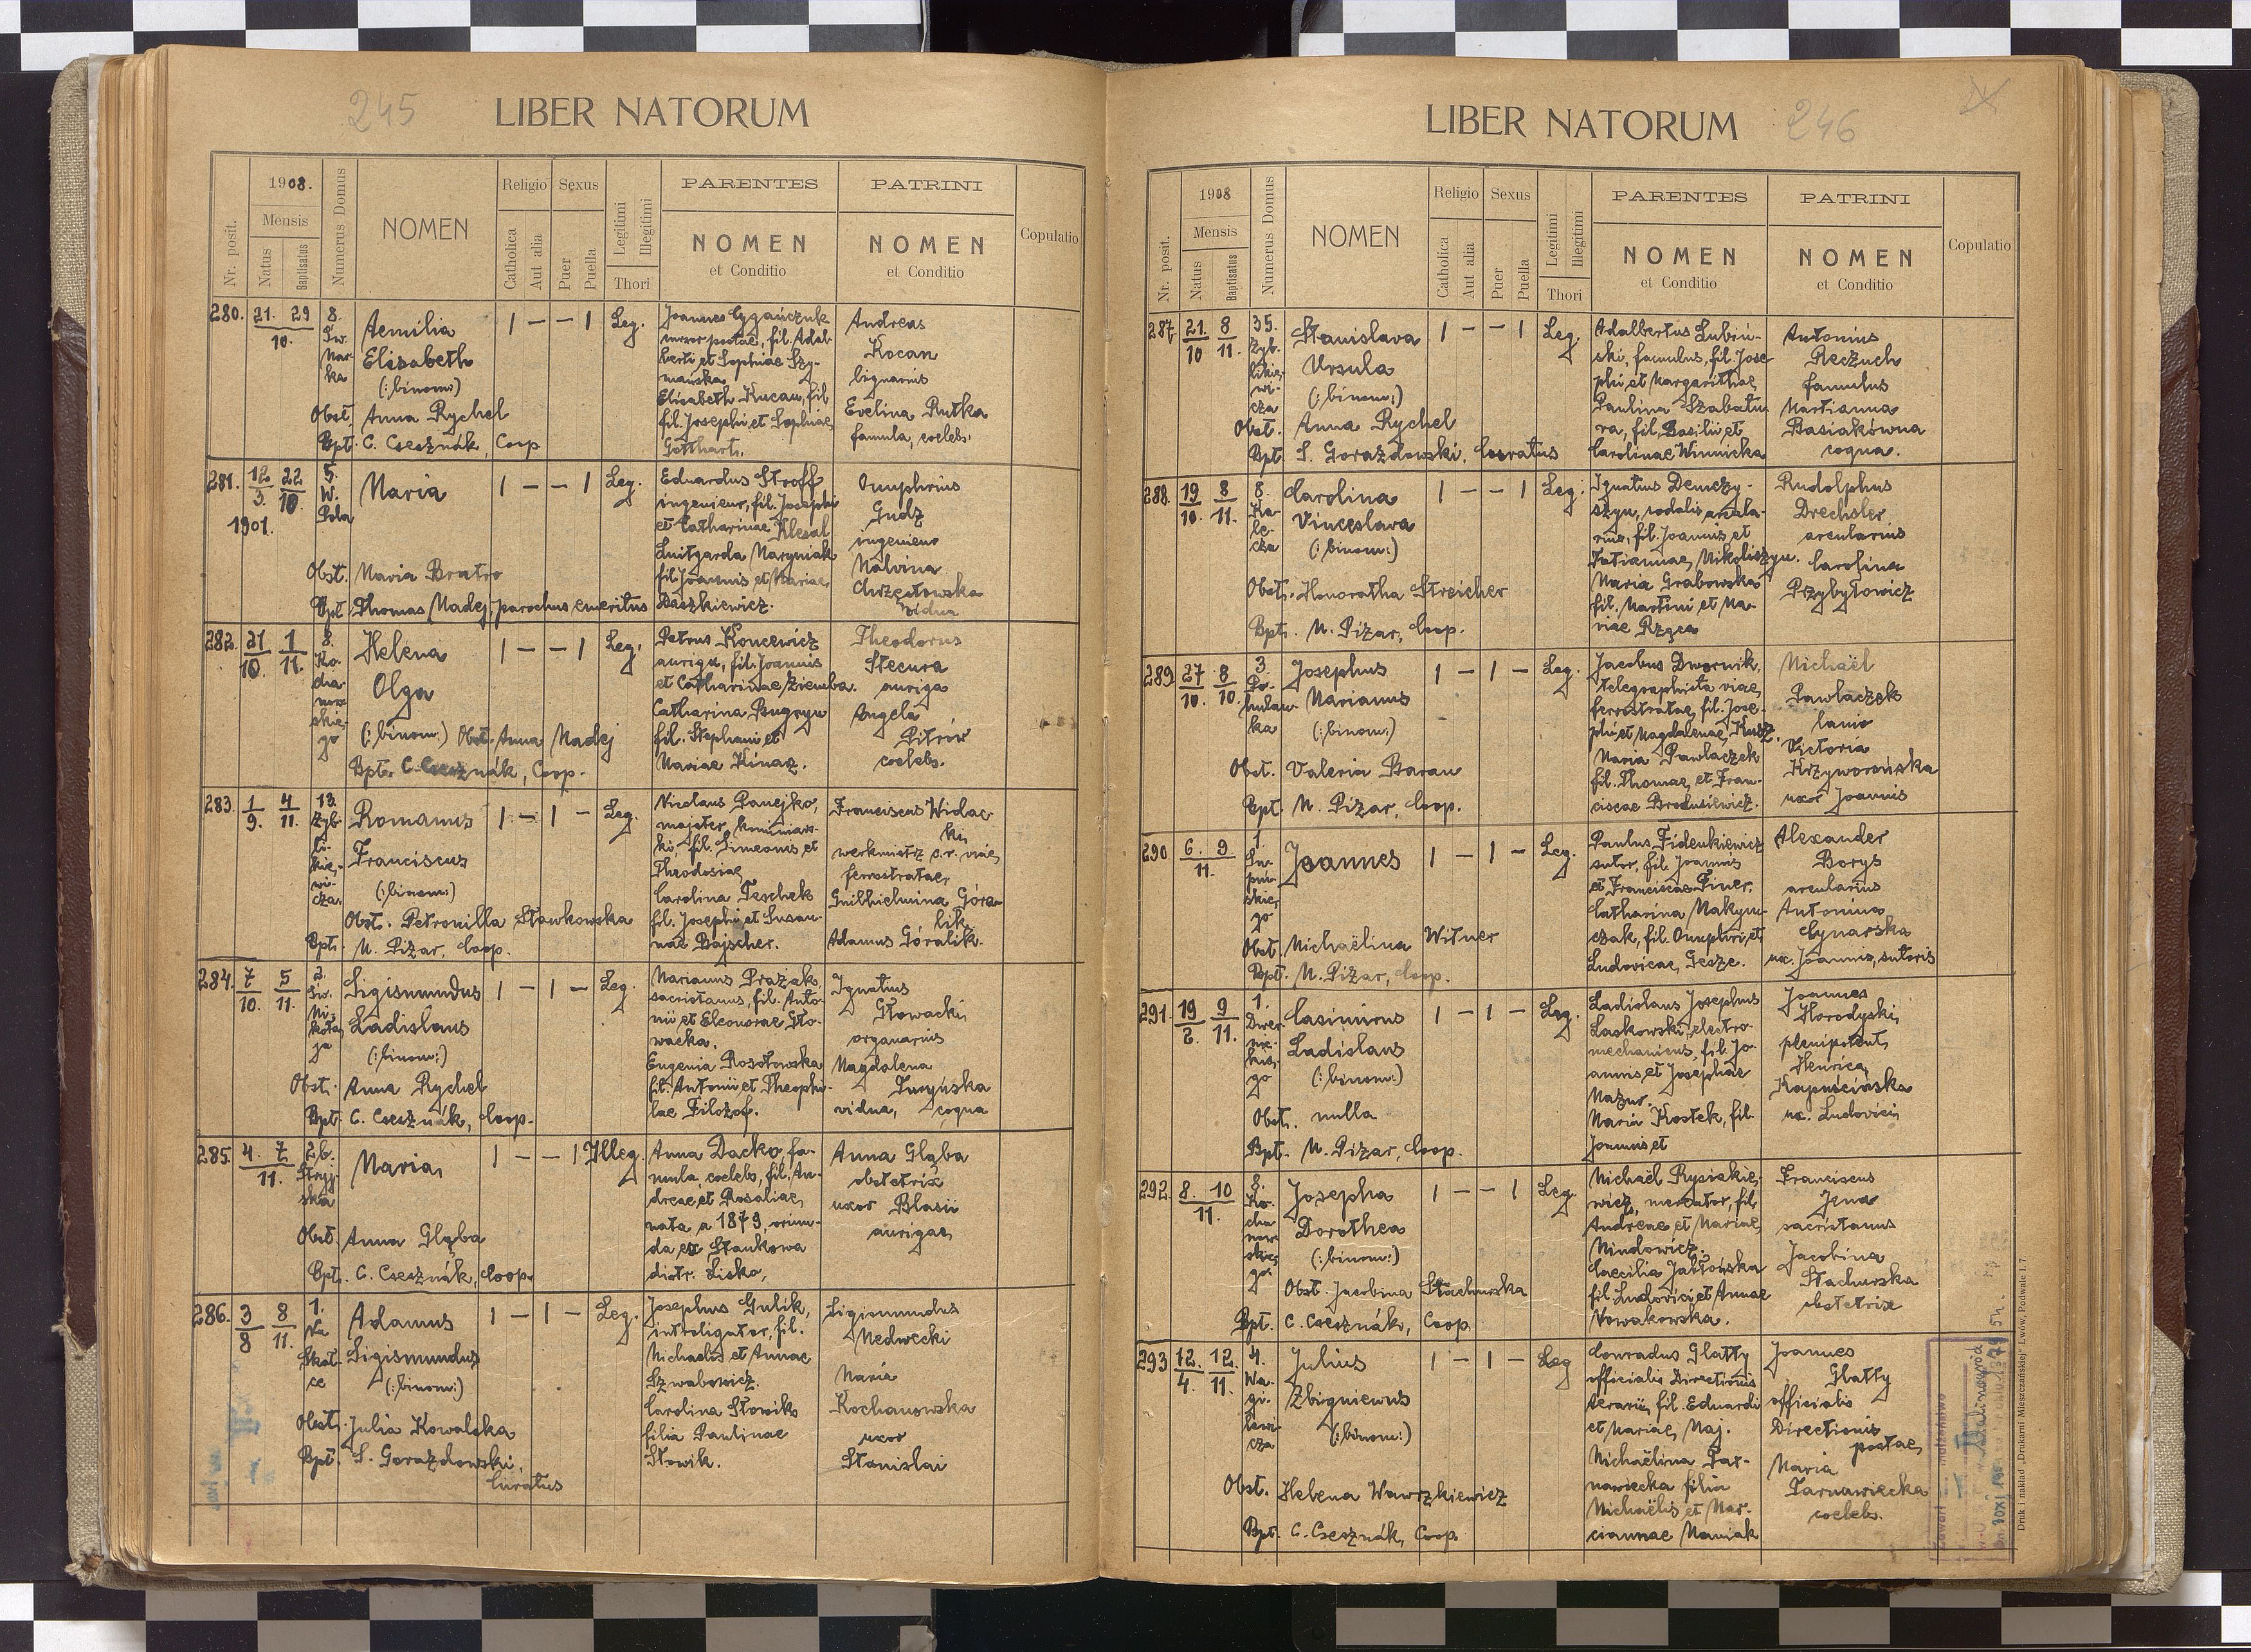 245
LIBER NATORUM
Nr. posit.
1908.
Mensis
Natus
Baptisatus
Numerus Domus
NOMEN
Religio
Catholica
Aut alia
Sexus
Puer
Puella
Legitimi
Illegitimi
Thori
PARENTES
NOMEN
et Conditio
PATRINI
NOMEN
et Conditio
Copulatio
280.
21. 29
10.
8.
Św.
Mar-
ka
Aemilia
Elisabeth
(:binom:)
Obst. Anna Rychel
Bpt. C. Csesznák, Coop
1 — — 1
Leg.
Joannes Cygańczuk
postae, fil. Adal-
berti et Sophiae Szy-
mańska
Elisabeth Kucan, fil
fil. Josephi et Sophiae
Gotthart.
Andreas
Kocan
lignarius
Evelina Rutka
famula, coelebs.
281.
12 22
3 10.
1901.
5.
W.
Pola
Maria
Obst. Maria Bratro
Bpt. Thomas Madej, parochus emeritus
1 — — 1
Leg.
Eduardus Stroff
ingenieur, fil. Josephi
et Catharinae Klesal
Luitgarda Maryniak
fil. Joannis et Mariae
Daszkiewicz.
Onuphrius
Gudz
ingenieur
Malvina
Chrzęstowska
vidua
282.
21 1
10. 11.
8.
Ko-
cha-
now-
skie-
go
Helena
Olga
(:binom:) Obst. Anna Madej
Bpt. C. Csesznák, Coop.
1 — — 1
Leg.
Petrus Koncewicz
auriga, fil. Joannis
et Catharinae Ziemba.
Catharina Bugryn
fil. Stephani et
Mariae Kinaz.
Theodorus
Stecura
auriga
Angela
Pitrów
coelebs.
283.
1 4
9. 11.
13.
Zyb-
li-
kie-
wi-
cza.
Romanus
Franciscus
(:binom:)
Obst. Petronilla Sławkowska
Bpt. M. Piżar, Coop.
1 — 1 —
Leg.
Nicolaus Panejko,
majster kominiars-
ki, fil. Simeonis et
Theodosiae
Carolina Teschek
fil. Josephi et Susan-
nae Bajscher.
Franciscus Widac-
ki,
werkmistrz c.r. viae
ferrostratae,
Guilhielmina Góra-
lik,
Adamus Góralik.
284.
7 5
10. 11.
2.
Św.
Mi-
koła-
ja
Sigismundus
Ladislaus
(:binom:)
Obst. Anna Rychel
Bpt. C. Csesznák, Coop.
1 — 1 —
Leg.
Marianus Prażak
sacristanus, fil. Anto-
nii et Eleonorae Gło-
wacka.
Eugenia Rosołowska
fil. Antonii et Theophi-
lae Filozof.
Ignatius
Głowacki,
organarius
Magdalena
vidua, coqua
285.
4. 7
11.
26.
Stryj-
ska
Maria,
Obst. Anna Głąba
Bpt. C. Csesznák, Coop.
1 — — 1
Illeg.
Anna Dacko, fa-
mula, coelebs, fil. An-
dreae et Rosaliae,
nata a 1879, oriun-
da ex Stankowa
distr. Lisko,
Anna Głąba
obstetrix
uxor Blasii
aurigae,
286.
3 8
8 11.
1.
Na
Skał-
ce
Adamus
Sigismundus
(:binom:)
Obst. Julia Kowalska
Bpt. S. Gorazdowski,
Curatus
1 — 1 —
Leg.
Josephus Gulik,
introligator, fil.
Michaelis et Annae
Szwabowicz.
Carolina Słowik
filia Paulinae
Słowik.
Sigismundus
Medwecki
Maria
Kochanowska
uxor
Stanislai
246
LIBER NATORUM
Nr. posit.
1908
Mensis
Natus
Baptisatus
Numerus Domus
NOMEN
Religio
Catholica
Aut alia
Sexus
Puer
Puella
Legitimi
Illegitimi
Thori
PARENTES
NOMEN
et Conditio
PATRINI
NOMEN
et Conditio
Copulatio
287.
21. 8
10 11.
35.
Zyb-
likie-
wi-
cza
Stanislava
Ursula
(:binom:)
Obst. Anna Rychel
Bpt. S. Gorazdowski, Curatus
1 — — 1
Leg.
Adalbertus Lubiń-
ski, famulus, fil. Jose-
phi et Margarithae
Paulina Szabatu-
ra, fil. Basilii et
Carolinae Winnicka
Antonius
Reczuch
famulus
Martianna
Basiakówna
coqua.
288.
19 8
10. 11.
8.
Ka-
le-
cza
Carolina
Vinceslava
(:binom:)
Obst. Honoratha Streicher
Bpt. M. Piżar, Coop.
1 — — 1
Leg.
Ignatius Demczy-
szyn, sodalis arcula-
rius, fil. Joannis et
Tatiannae Mikoliszyn.
Maria Grabowska
fil. Martini et Ma-
riae Rzęsa
Rudolphus
Drechsler
arcularius
Carolina
Przybyłowicz
289.
27 8
10. 10.
3.
Po-
hulan-
ka
Josephus
Marianus
(:binom:)
Obst. Valeria Baran
Bpt. M. Piżar, Coop.
1 — 1 —
Leg.
Jacobus Dwornik,
telegraphista viae
ferrostratae, fil. Jose-
phi et Magdalenae
Maria Pawlaczek
fil. Thomae et Fran-
ciscae Brodusiewicz.
Michaël
Pawlaczek
lanio
Victoria
Krzyworońska
uxor Joannis
290
6. 9.
11.
1.
Su-
piń-
skie-
go
Joannes
Obst. Michaëlina Witner
Bpt. M. Piżar, Coop.
1 — 1 —
Leg.
Paulus Fidenkiewicz
sutor, fil. Joannis
et Franciscae Finer.
Catharina Makym-
czak, fil. Onuphri et
Ludovicae Gesze.
Alexander
Borys
arcularius
Antonina
Cynarska
ux. Joannis, sutoris
291.
19 9
2. 11.
1.
Dwer-
nic-
kie-
go
Casimirus
Ladislaus
(:binom:)
Obst. nulla
Bpt. M. Piżar, Coop.
1 — 1 —
Leg.
Ladislaus Josephus
Laskowski, electro-
mechanicus, fil. Jo-
annis et Josephae
Mazur.
Maria Kostek, fil.
Joannis et
Joannes
Horodyski,
plenipotent,
Henrica
Kapuścińska
ux. Ludovici
292.
8. 10
11.
8.
Ko-
cha-
now-
skie-
go
Josepha
Dorothea
(:binom:)
Obst. Jacobina Stachurska
Bpt. C. Csesznák, Coop.
1 — — 1
Leg.
Michaël Rysiakie-
wicz, mercator, fil.
Andreae et Mariae
Mindowicz.
Caecilia Jabłońska
fil. Ludovici et Annae
Nowakowska.
Franciscus
Jena
sacristanus
Jacobina
Stachurska
obstetrix
293
12. 12.
4. 11.
4.
Wa-
gi-
lewi-
cza
Julius
Zbigniewus
(:binom:)
Obst. Helena Wawrzkiewicz
Bpt. C. Csesznák, Coop
1 — 1 —
Leg
Conradus Glatty
officialis Directionis
Aerarii, fil. Eduardi
et Mariae Maj.
Michaëlina Tar-
nawiecka filia
Michaëlis et Mar-
ciannae Maniak
Joannes
Glatty
officialis
Directionis
postae,
Maria
Tarnawiecka
coelebs.
Druk i nakład „Drukarni Mieszczańskiej" Lwów, Podwale l. 7.